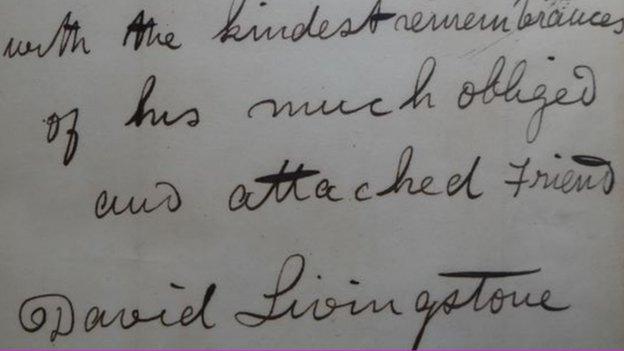 with the kindest remembrances
of his much obliged
and attached Friend
David Livingstone